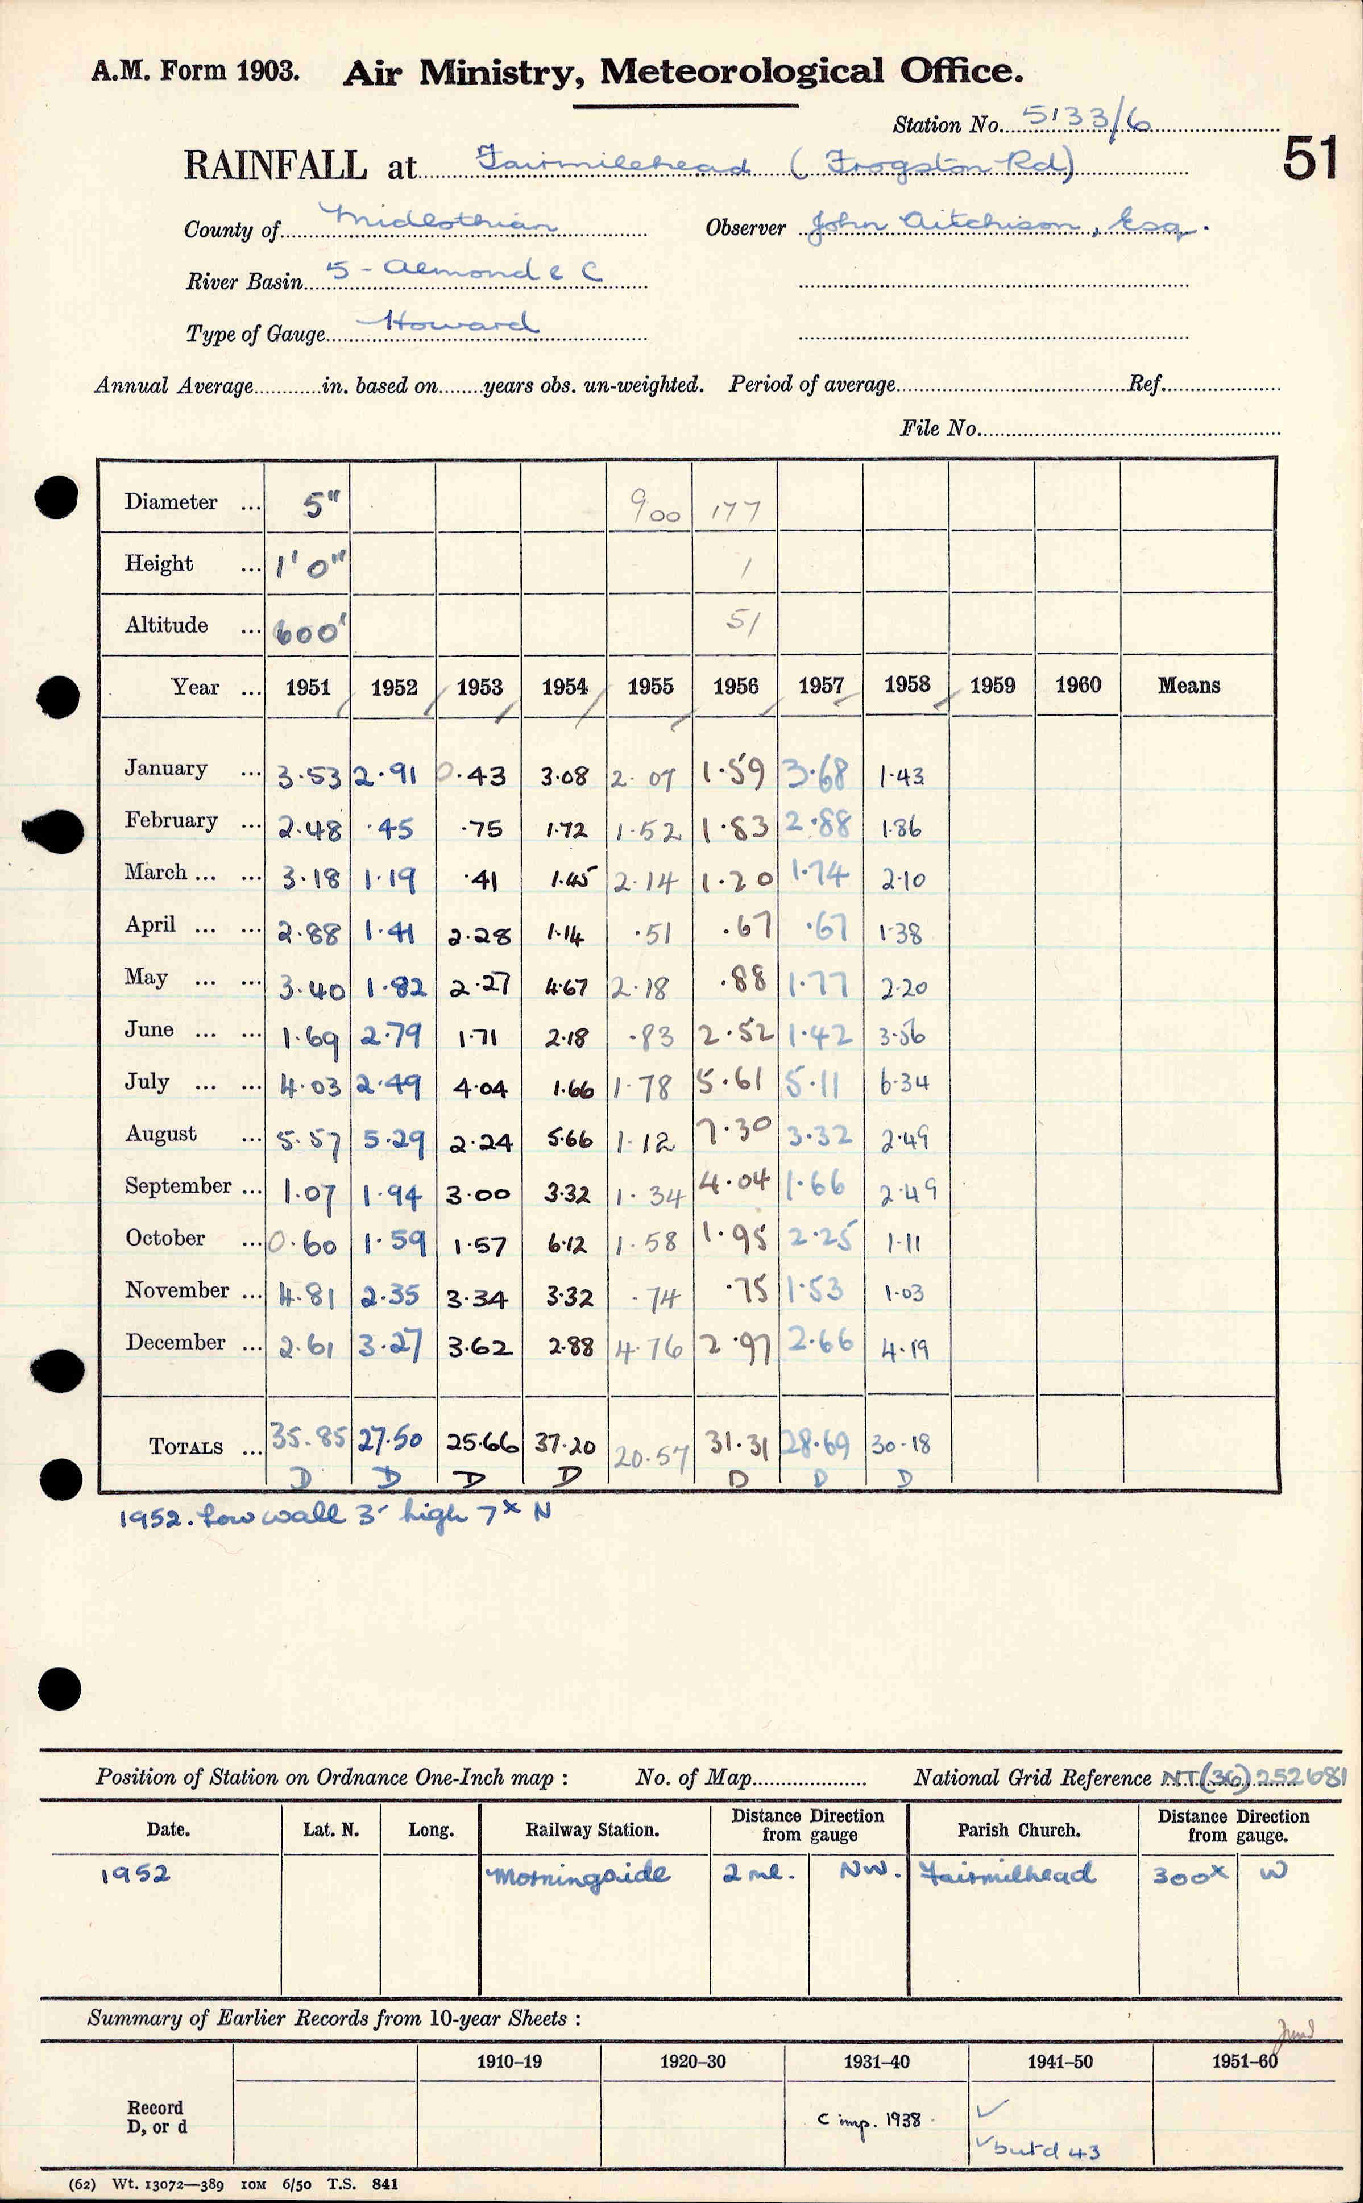 A.M. Form 1903. Air Ministry, Meteorological Office.
Station No. 5133/6
RAINFALL at Fairmilehead (Frogston Rd) 51
County of Midlothian Observer John Aitchison, Esq.
River Basin 5 - Almond & C
Type of Gauge Howard
Annual Average in. based on years obs. un-weighted. Period of average Ref.
File No.
Diameter ... 5" 900 177
Height ... 1' 0" 1
Altitude ... 600' 51
Year ... 1951 1952 1953 1954 1955 1956 1957 1958 1959 1960 Means
January ... 3.53 2.91 0.43 3.08 2.07 1.59 3.68 1.43
February ... 2.48 .45 .75 1.72 1.52 1.83 2.88 1.86
March ... ... 3.18 1.19 .41 1.45 2.14 1.20 1.74 2.10
April ... ... 2.88 1.41 2.28 1.14 .51 .67 .67 1.38
May ... ... 3.40 1.82 2.27 4.67 2.18 .88 1.77 2.20
June ... ... 1.69 2.79 1.71 2.18 .83 2.52 1.42 3.56
July ... ... 4.03 2.49 4.04 1.66 1.78 5.61 5.11 6.34
August ... 5.57 5.29 2.24 5.66 1.12 7.30 3.32 2.49
September ... 1.07 1.94 3.00 3.32 1.34 4.04 1.66 2.49
October ... 0.60 1.59 1.57 6.12 1.58 1.95 2.25 1.11
November ... 4.81 2.35 3.34 3.32 .74 .75 1.53 1.03
December ... 2.61 3.27 3.62 2.88 4.76 2.97 2.66 4.19
TOTALS ... 35.85 27.50 25.66 37.20 20.57 31.31 28.69 30.18
D D D D D D D
1952. Low wall 3' high 7x N
Position of Station on Ordnance One-Inch map : No. of Map National Grid Reference NT(36) 252681
Date. Lat. N. Long. Railway Station. Distance Direction from gauge Parish Church. Distance Direction from gauge.
1952 Morningside 2 ml. NW. Fairmilhead 300x W
Summary of Earlier Records from 10-year Sheets :
1910–19 1920–30 1931–40 1941–50 1951–60
Record D, or d C imp. 1938 ✓
✓ but d 43
(62) Wt. 13072—389 10M 6/50 T.S. 841